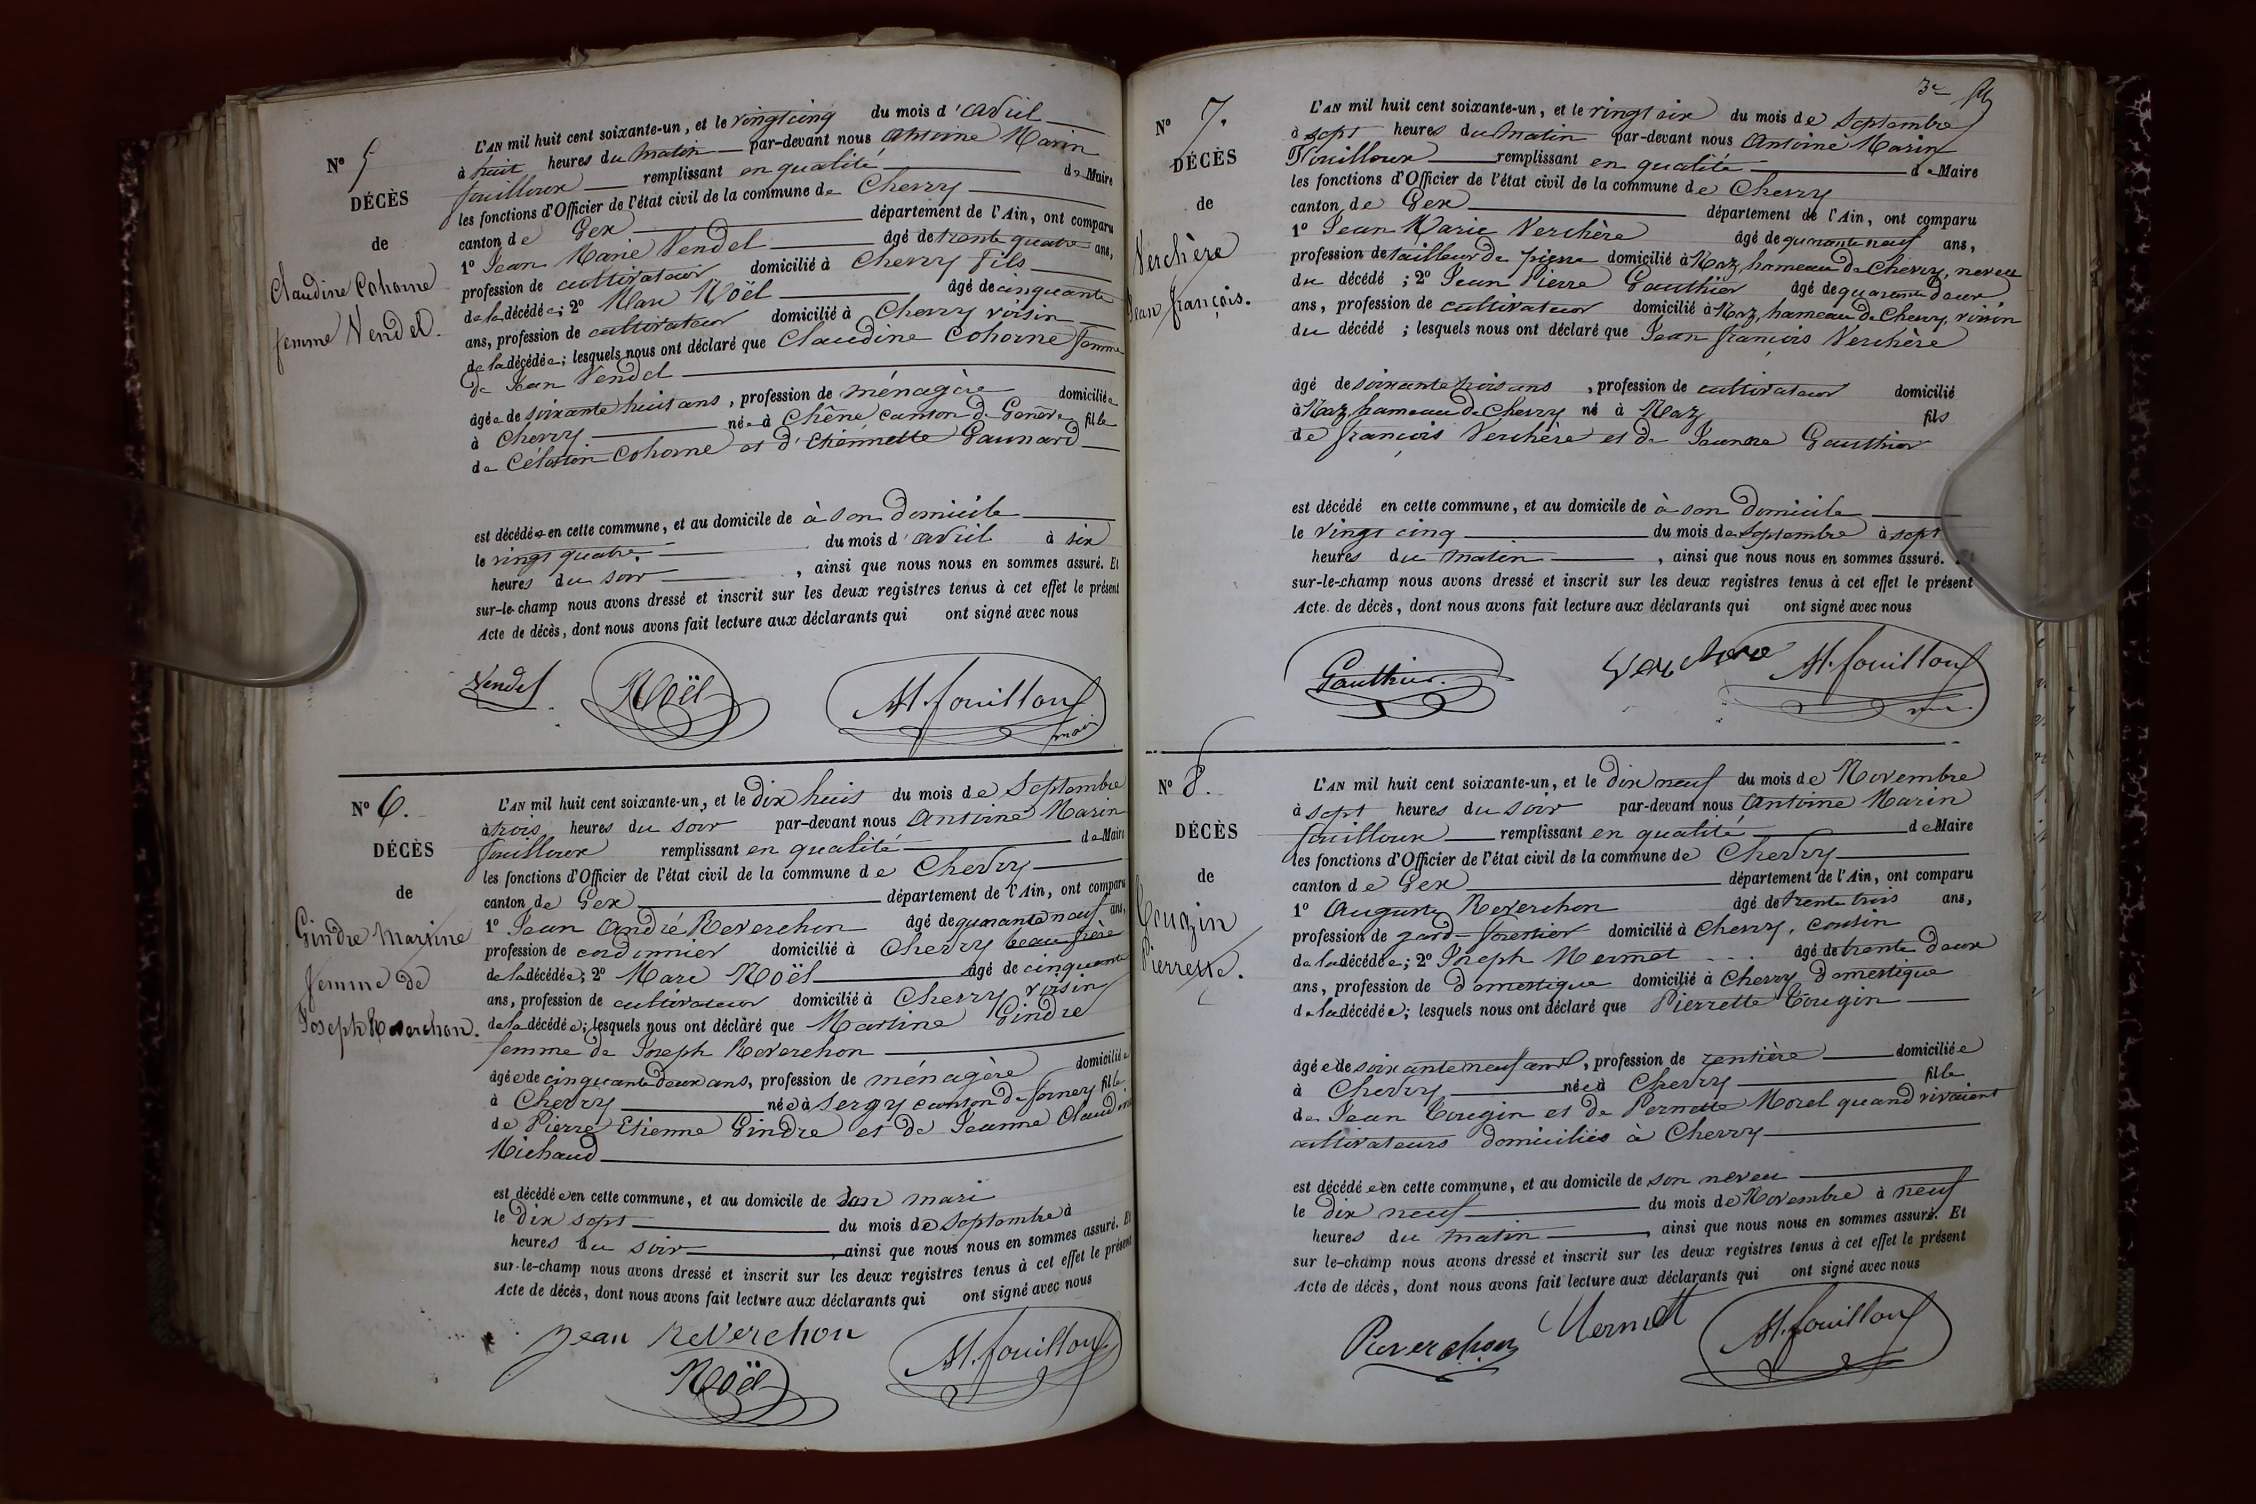 N° 5
DÉCÈS
de
Claudine Cohorne
femme Vendel.
L'AN mil huit cent soixante-un, et le vingt cinq du mois d'avril
à huit heures du matin par-devant nous Antoine Marin
fouilloux remplissant en qualité de Maire
les fonctions d'Officier de l'état civil de la commune de Chevry
canton de Gex département de l'Ain, ont comparu
1° Jean Marie Vendel âgé de trente quatre ans,
profession de cultivateur domicilié à Chevry fils
de la décédée; 2° Marc Noël âgé de cinquante
ans, profession de cultivateur domicilié à Chevry voisin
de la décédée; lesquels nous ont déclaré que Claudine Cohorne femme
de Jean Vendel
âgée de soixante huit ans, profession de ménagère domiciliée
à Chevry née à Chêne canton de Genève fille
de Célestin Cohorne et d'Etiennette Gaunard
est décédée en cette commune, et au domicile de à son domicile
le vingt quatre du mois d'avril à six
heures du soir, ainsi que nous nous en sommes assuré. Et
sur-le-champ nous avons dressé et inscrit sur les deux registres tenus à cet effet le présent
Acte de décès, dont nous avons fait lecture aux déclarants qui ont signé avec nous
Vendel Noël M. fouilloux
maire
N° 6.
DÉCÈS
de
Gindre Martine
femme de
Joseph Reverchon.
L'AN mil huit cent soixante-un, et le dix huit du mois de Septembre
à trois heures du soir par-devant nous Antoine Marin
fouilloux remplissant en qualité de Maire
les fonctions d'Officier de l'état civil de la commune de Chevry
canton de Gex département de l'Ain, ont comparu
1° Jean André Reverchon âgé de quarante neuf ans,
profession de cordonnier domicilié à Chevry beau frère
de la décédée; 2° Marc Noël âgé de cinquante
ans, profession de cultivateur domicilié à Chevry voisin
de la décédée; lesquels nous ont déclaré que Martine Gindre
femme de Joseph Reverchon
âgée de cinquante deux ans, profession de ménagère domiciliée
à Chevry née à Sergy canton de ferney fille
de Pierre Etienne Gindre et de Jeanne Claudine
Michaud
est décédée en cette commune, et au domicile de son mari
le dix sept du mois de Septembre à
heures du soir, ainsi que nous nous en sommes assuré. Et
sur-le-champ nous avons dressé et inscrit sur les deux registres tenus à cet effet le présent
Acte de décès, dont nous avons fait lecture aux déclarants qui ont signé avec nous
Jean Reverchon M. fouilloux
Noël
N° 7.
DÉCÈS
de
Verchère
Jean françois.
L'AN mil huit cent soixante-un, et le vingt six du mois de Septembre
à sept heures du matin par-devant nous Antoine Marin
Fouilloux remplissant en qualité de Maire
les fonctions d'Officier de l'état civil de la commune de Chevry
canton de Gex département de l'Ain, ont comparu
1° Jean Marie Verchère âgé de quarante neuf ans,
profession de tailleur de pierre domicilié à Naz, hameau de Chevry, neveu
du décédé; 2° Jean Pierre Gauthier âgé de quarante deux
ans, profession de cultivateur domicilié à Naz, hameau de Chevry, voisin
du décédé; lesquels nous ont déclaré que Jean françois Verchère
âgé de soixante trois ans, profession de cultivateur domicilié
à Naz, hameau de Chevry né à Naz fils
de françois Verchère et de Jeanne Gauthier
est décédé en cette commune, et au domicile de à son domicile
le vingt cinq du mois de Septembre à sept
heures du matin, ainsi que nous nous en sommes assuré. Et
sur-le-champ nous avons dressé et inscrit sur les deux registres tenus à cet effet le présent
Acte de décès, dont nous avons fait lecture aux déclarants qui ont signé avec nous
Gauthier. Verchere M. fouilloux
N° 8.
DÉCÈS
de
Tougin
Pierrette.
L'AN mil huit cent soixante-un, et le dix neuf du mois de Novembre
à sept heures du soir par-devant nous Antoine Marin
fouilloux remplissant en qualité de Maire
les fonctions d'Officier de l'état civil de la commune de Chevry
canton de Gex département de l'Ain, ont comparu
1° Auguste Reverchon âgé de trente trois ans,
profession de gard-forestier domicilié à Chevry, cousin
de la décédée; 2° Joseph Mermet âgé de trente deux
ans, profession de domestique domicilié à Chevry domestique
de la décédée; lesquels nous ont déclaré que Pierrette Tougin
âgée de soixante neuf ans, profession de rentière domiciliée
à Chevry née à Chevry fille
de Jean Tougin et de Pernette Morel quand vivaient
cultivateurs domiciliés à Chevry
est décédée en cette commune, et au domicile de son neveu
le dix neuf du mois de Novembre à neuf
heures du matin, ainsi que nous nous en sommes assuré. Et
sur le-champ nous avons dressé et inscrit sur les deux registres tenus à cet effet le présent
Acte de décès, dont nous avons fait lecture aux déclarants qui ont signé avec nous
Reverchon Mermet M. fouilloux